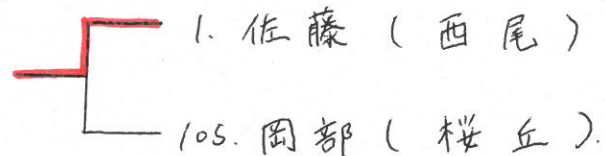 1. 佐藤 ( 西尾 )
105. 岡部 ( 桜丘 ).